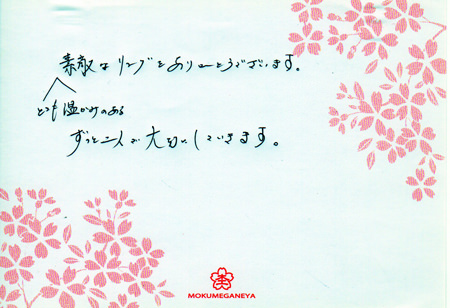 素敵なリングをありがとうございます。
とても温かみのある
ずっと二人で大切にしていきます。
MOKUMEGANEYA